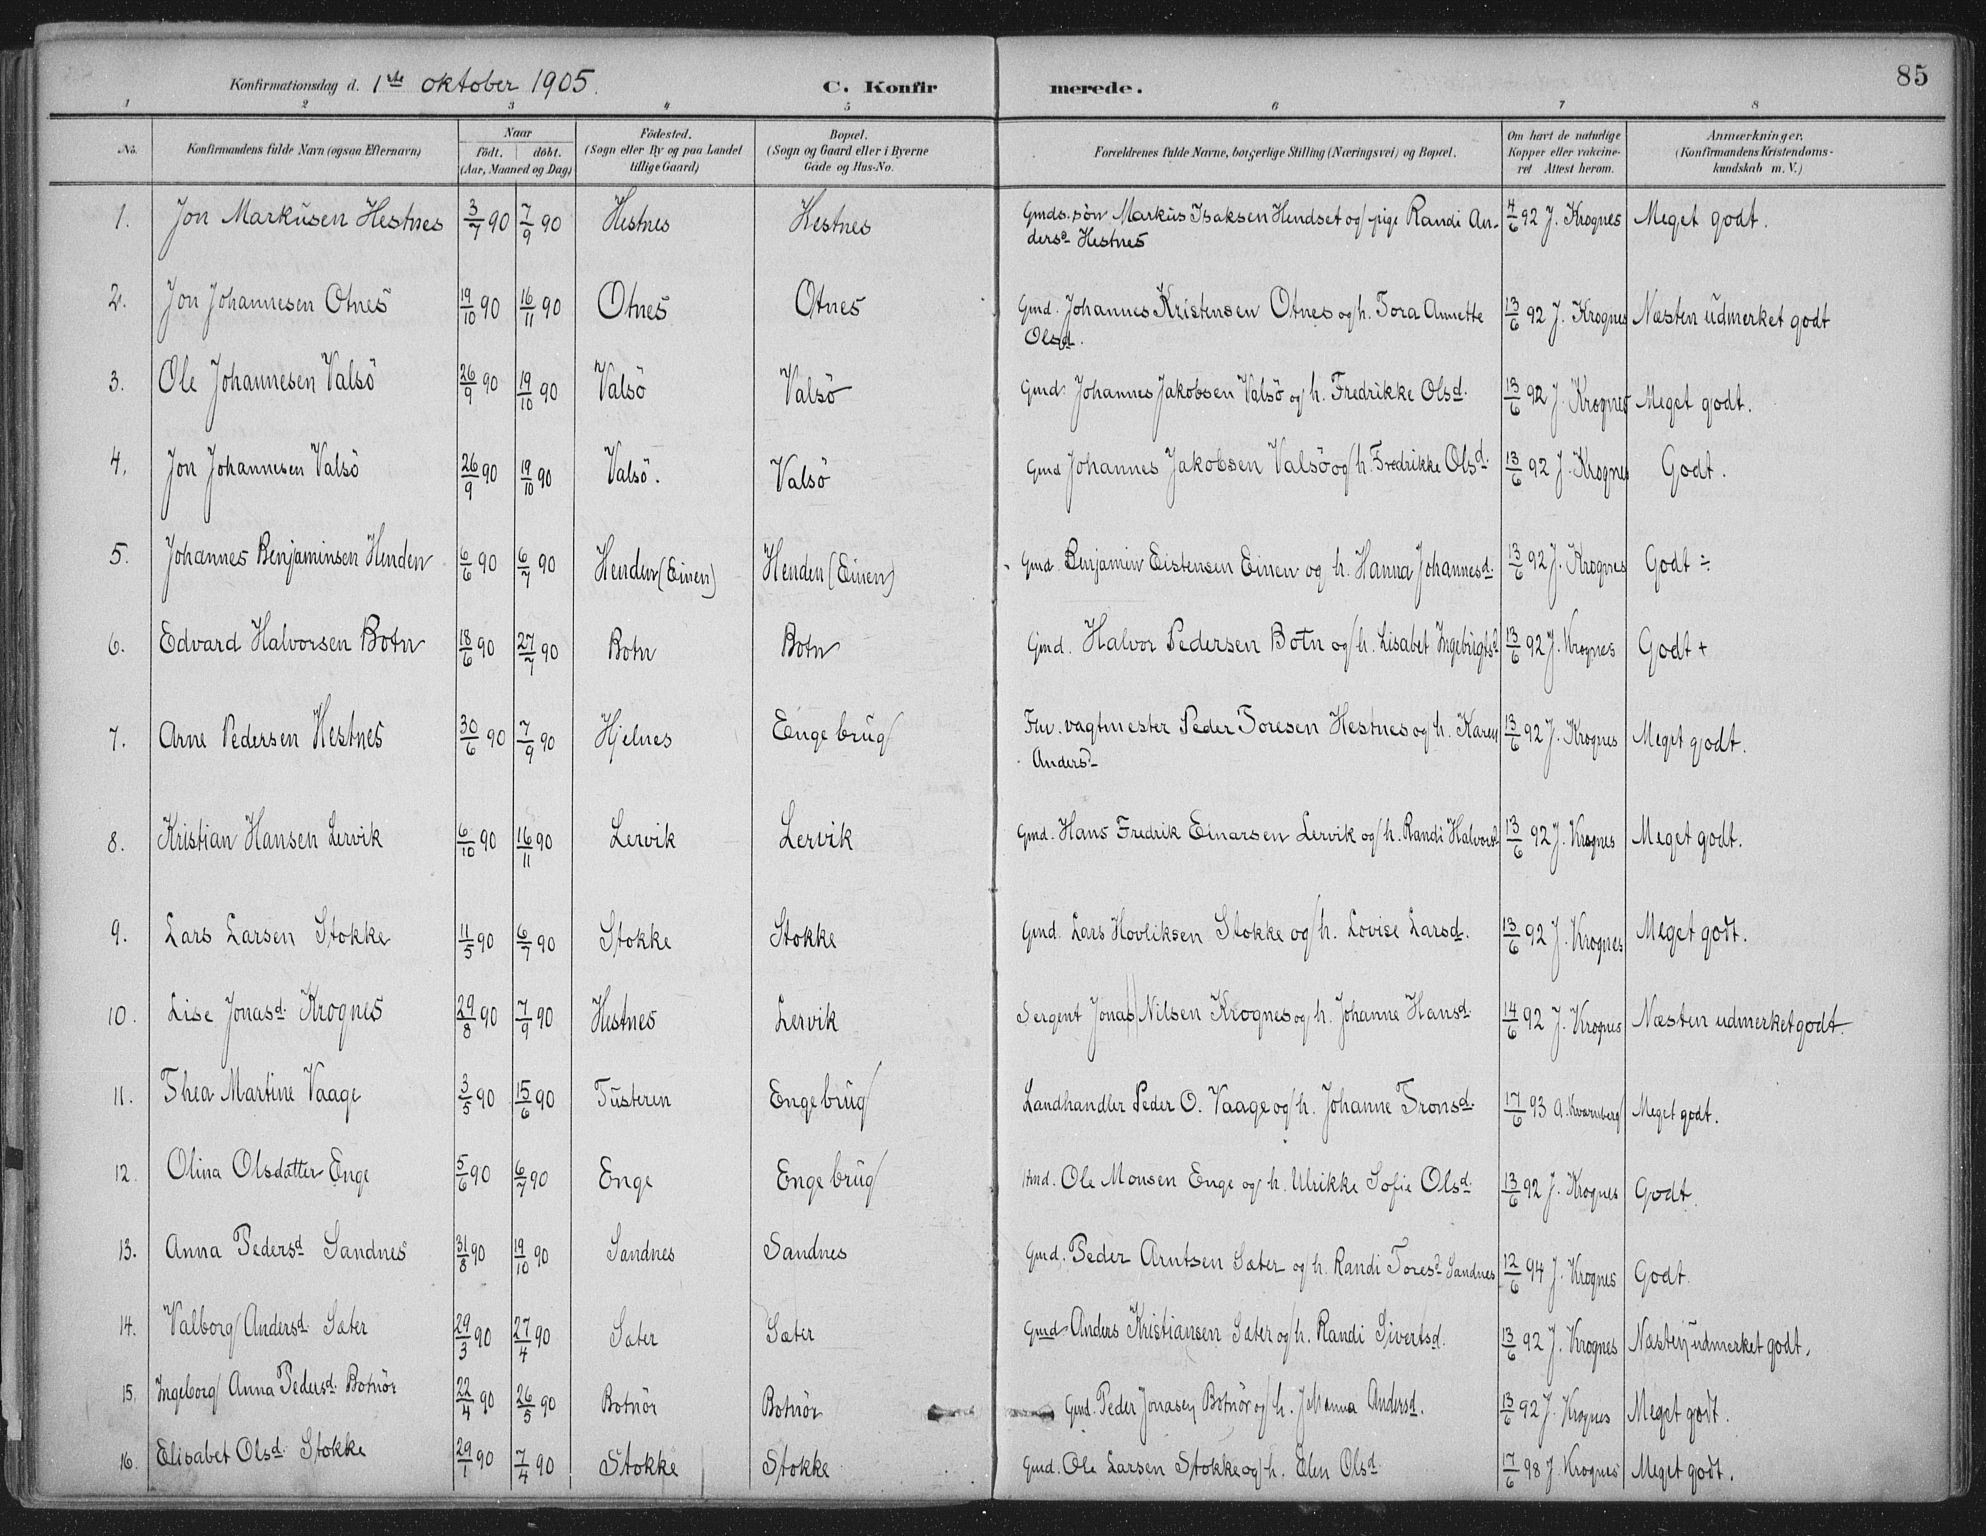 85
Konfirmationsdag d. 1ste oktober 1905. C. Konfirmerede.
1 2 3 4 5 6 7 8
No. Konfirmandens fulde Navn (ogsaa Efternavn) Naar födt. döbt. (Aar, Maaned og Dag) Födested. (Sogn eller By og paa Landet tillige Gaard) Bopæl. (Sogn og Gaard eller i Byerne Gade og Hus-No. Forældrenes fulde Navne, borgerlige Stilling (Næringsvei) og Bopæl. Om havt de naturlige Kopper eller vakcineret Attest herom. Anmærkninger. (Konfirmandens Kristendomskundskab m. V.)
1. Jon Markusen Hestnes 3/7 90 7/9 90 Hestnes Hestnes Gmds. søn Markus Isaksen Hendset og pige Randi An-
dersd Hestnes 4/6 92 J. Krognes Meget godt.
2. Jon Johannesen Otnes 19/10 90 16/11 90 Otnes Otnes Gmd. Johannes Kristensen Otnes og h. Tora Annette
Olsd. 13/6 92 J. Krognes Næsten udmerket godt
3. Ole Johannesen Valsö 26/9 90 19/10 90 Valsö Valsö Gmd. Johannes Jakobsen Valsö og h. Fredrikke Olsd. 13/6 92 J. Krognes Meget godt.
4. Jon Johannesen Valsö 26/9 90 19/10 90 Valsö. Valsö Gmd Johannes Jakobsen Valsö og h. Fredrikke Olsd. 13/6 92 J. Krognes Godt.
5. Johannes Benjaminsen Henden 6/6 90 6/7 90 Henden (Einen) Henden (Einen) Gmd. Benjamin Eistensen Einen og h. Hanna Johannesd. 13/6 92 J. Krognes Godt ÷
6. Edvard Halvorsen Botn 18/6 90 27/7 90 Botn Botn Gmd. Halvor Pedersen Botn og h. Lisabet Ingebrigtsd 13/6 92 J. Krognes Godt +
7. Arne Pedersen Hestnes 30/6 90 7/9 90 Hjelnes Enge brug Fhv. vagtmester Peder Toresen Hestnes og h. Karen
Andersd 13/6 92 J. Krognes Meget godt.
8. Kristian Hansen Lervik 6/10 90 16/11 90 Lervik Lervik Gmd. Hans Fredrik Einarsen Lervik og h. Randi Halvorsd 13/6 92 J. Krognes Meget godt.
9. Lars Larsen Stokke 11/5 90 6/7 90 Stokke Stokke Gmd. Lars Hovliksen Stokke og h. Lovise Larsd. 13/6 92 J. Krognes Meget godt.
10. Lise Jonasd. Krognes 29/8 90 7/9 90 Hestnes Lervik Sergent Jonas Nilsen Krognes og h. Johanne Hansd. 14/6 92 J. Krognes Næsten udmerket godt.
11. Thea Martine Vaage 3/5 90 15/6 90 Tusteren Enge brug Landhandler Peder O. Vaage og h. Johanne Tronsd. 17/6 93 A. Kvarnberg Meget godt.
12. Olina Olsdatter Enge 5/6 90 6/7 90 Enge Enge brug Ole Monsen Enge og h. Ulrikke Sofie Olsd. 13/6 92 J. Krognes Godt.
13. Anna Pedersd Sandnes 31/8 90 19/10 90 Sandnes Sandnes Gmd. Peder Arntsen Sæter og h. Randi Toresd Sandnes 12/6 94 J. Krognes Godt.
14. Valborg Andersd. Sæter 29/3 90 27/4 90 Sæter Sæter Gmd Anders Kristiansen Sæter og h. Randi Sivertsd. 13/6 92 J. Krognes Næsten udmerket godt.
15. Ingeborg Anna Pedersd. Botnör 22/4 90 26/5 90 Botnör Botnör Gmd. Peder Jonasen Botnör og h. Andersd. 13/6 92 J. Krognes Meget godt.
16. Elisabet Olsd. Stokke 29/1 90 7/4 90 Stokke Stokke Gmd. Ole Larsen Stokke og h. Elen Olsd. 17/6 98 J. Krognes Meget godt.